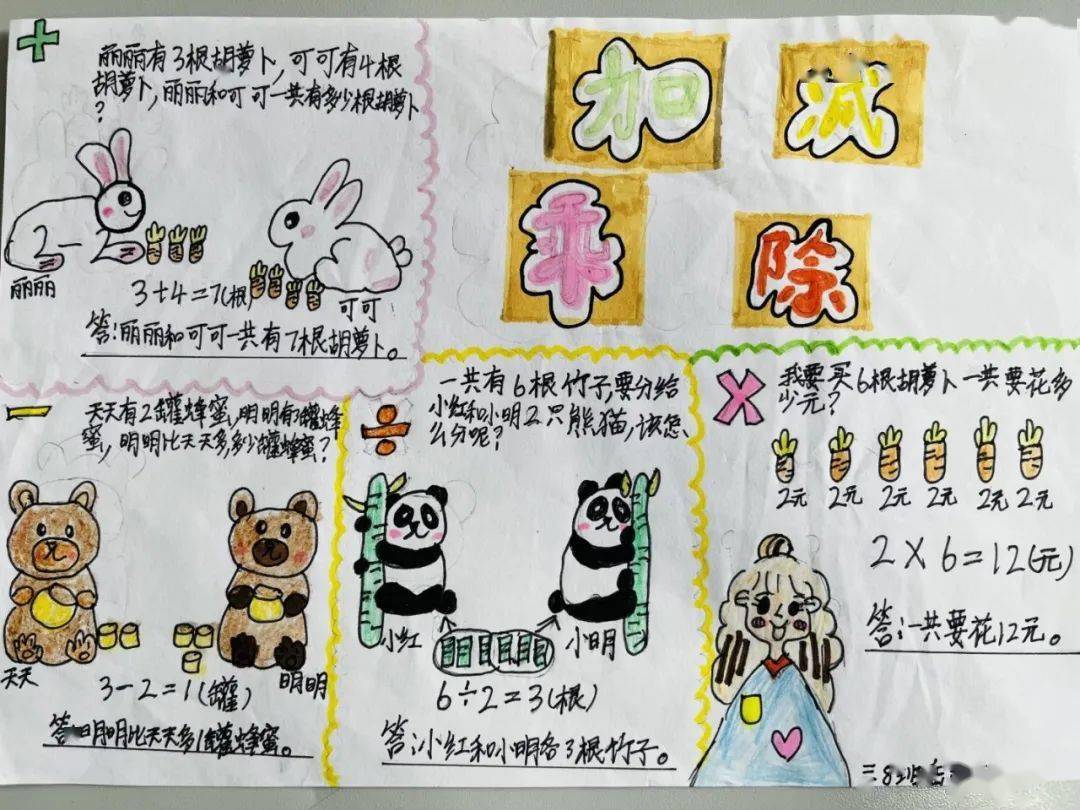 加 减
乘 除
+
丽丽有3根胡萝卜,可可有4根
胡萝卜,丽丽和可可一共有多少根胡萝卜
?
丽丽
3+4=7(根)
可可
答:丽丽和可可一共有7根胡萝卜。
-
天天有2罐蜂蜜,明明有3罐蜂
蜜,明明比天天多,多少罐蜂蜜?
天天
明明
3-2=1(罐)
答:明明比天天多1罐蜂蜜。
÷
一共有6根竹子,要分给
小红和小明2只熊猫,该怎
么分呢?
小红
小明
6÷2=3(根)
答:小红和小明各3根竹子。
×
我要买6根胡萝卜一共要花多
少元?
2元 2元 2元 2元 2元 2元
2×6=12(元)
答:一共要花12元。
三.8